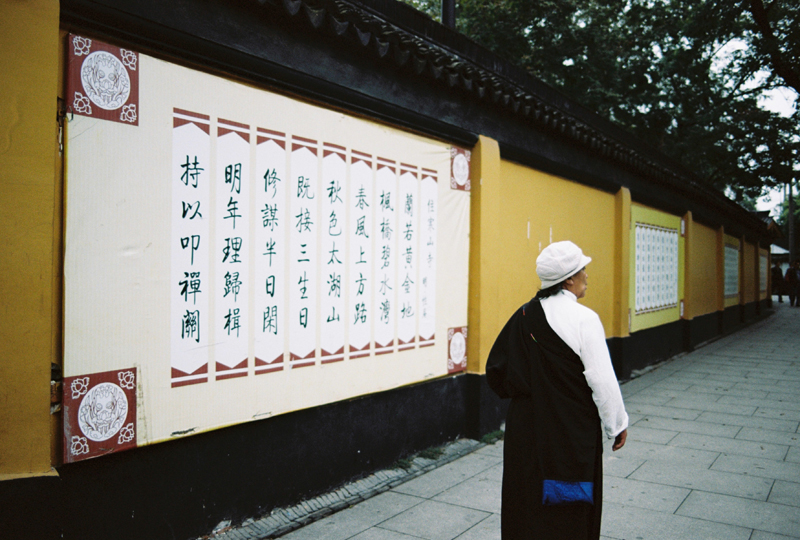 寒山寺 明
蘭若黃金地
楓橋碧水灣
春風上方路
秋色太湖山
既接三生日
修謀半日閑
明年理歸楫
持以叩禪關